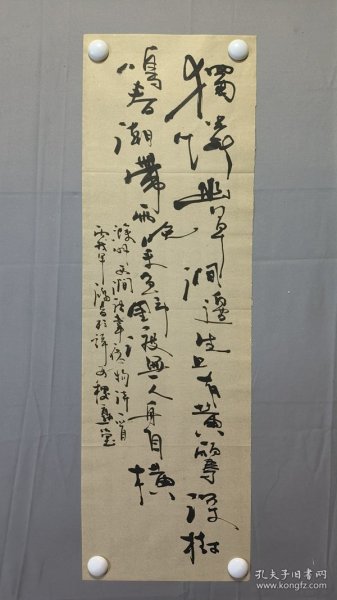 独怜幽草涧边生上有黄鹂深树
鸣春潮带雨晚来急野渡无人舟自横
滁州西涧 韦应物诗一首
孔夫子旧书网
www.kongfz.com